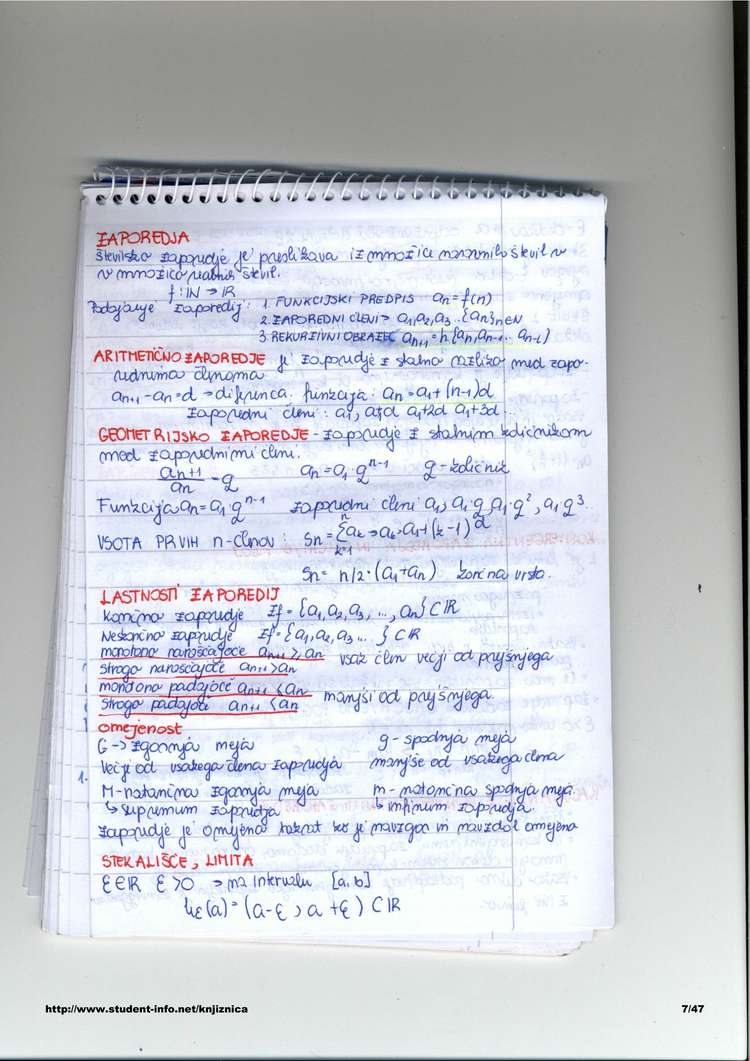 ZAPOREDJA
številsko zaporedje je preslikava iz množice naravnih števil v
v množico realnih števil.
f: ℕ → ℝ
Podajanje zaporedij: 1. FUNKCIJSKI PREDPIS an = f(n)
2. ZAPOREDNI ČLENI → a1, a2, a3 ... {an}n∈N
3. REKURZIVNI OBRAZEC an+1 = h (an, an-1 ... an-k)
ARITMETIČNO ZAPOREDJE je zaporedje z stalno razliko med zapo-
rednima členoma
an+1 - an = d → diferenca. funkcija: an = a1 + (n-1)d
Zaporedni členi: a1, a1+d a1+2d a1+3d ...
GEOMETRIJSKO ZAPOREDJE - zaporedje z stalnim količnikom
med zaporednimi členi.
an+1/an = q an = a1 · q^n-1 q - količnik
Funkcija an = a1 q^n-1 zaporedni členi a1, a1·q a1·q², a1 q³.
VSOTA PRVIH n-členov: Sn = Σ k=1 n ak → ak = a1 + (k-1) d
Sn = n/2 · (a1 + an) končna vrsta.
LASTNOSTI ZAPOREDIJ
končno zaporedje Zf = {a1, a2, a3, ..., an} ⊂ ℝ
Neskončno zaporedje Zf = {a1, a2, a3 ... } ⊂ ℝ
monotono naraščajoče an+1 ≥ an vsak člen večji od prejšnjega
strogo naraščajoče an+1 > an
monotono padajoče an+1 ≤ an manjši od prejšnjega.
strogo padajoče an+1 < an
omejenost
G → zgornja meja g - spodnja meja
Večje od vsakega člena zaporedja manjše od vsakega člena
M - natančna zgornja meja m - natančna spodnja meja
↳ supremum zaporedja ↳ infinum zaporedja.
zaporedje je omejeno takrat ko je navzgor in navzdol omejeno
STEKALIŠČE, LIMITA
ε∈ℝ ε>0 → na intervalu [a, b]
(a) = (a-ε, a+ε) ⊂ ℝ
http://www.student-info.net/knjiznica
7/47